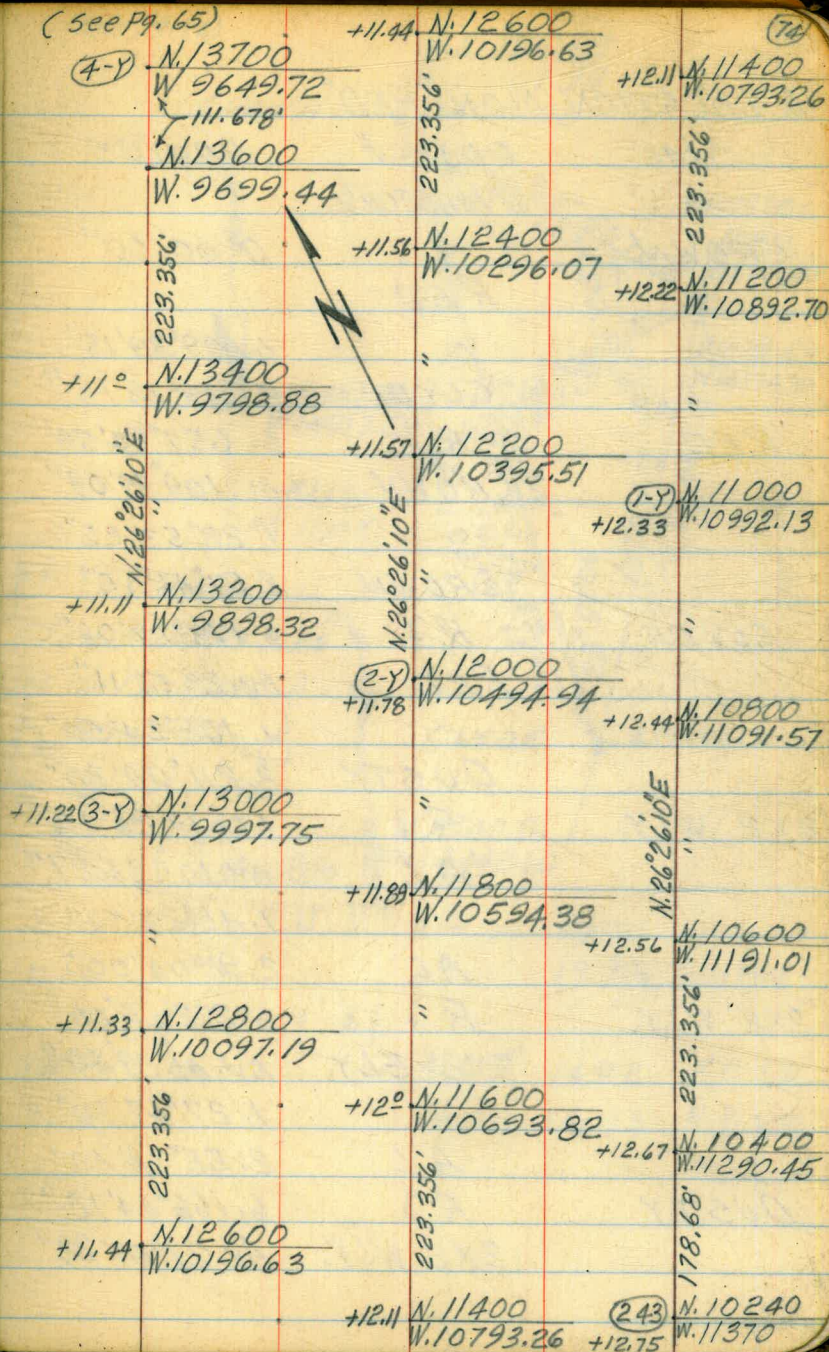 (See Pg. 65)
4-Y
N. 13700
W 9649.72
111.678'
N. 13600
W. 9699.44
223.356'
+11º N. 13400
W. 9798.88
N. 26°26'10" E
"
+11.11 N. 13200
W. 9898.32
"
+11.22 3-Y N. 13000
W. 9997.75
"
+11.33 N. 12800
W. 10097.19
223.356'
+11.44 N. 12600
W. 10196.63
+11.44 N. 12600
W. 10196.63
223.356'
+11.56 N. 12400
W. 10296.07
N
"
+11.57 N. 12200
W. 10395.51
N. 26°26'10" E
"
2-Y N. 12000
+11.78 W. 10494.94
"
+11.89 N. 11800
W. 10594.38
"
+12º N. 11600
W. 10693.82
223.356'
+12.11 N. 11400
W. 10793.26
74
+12.11 N. 11400
W. 10793.26
223.356'
+12.22 N. 11200
W. 10892.70
"
1-Y N. 11000
+12.33 W. 10992.13
"
+12.44 N. 10800
W. 11091.57
N. 26°26'10" E
"
+12.56 N. 10600
W. 11191.01
223.356'
+12.67 N. 10400
W. 11290.45
178.68'
243 N. 10240
+12.75 W. 11370